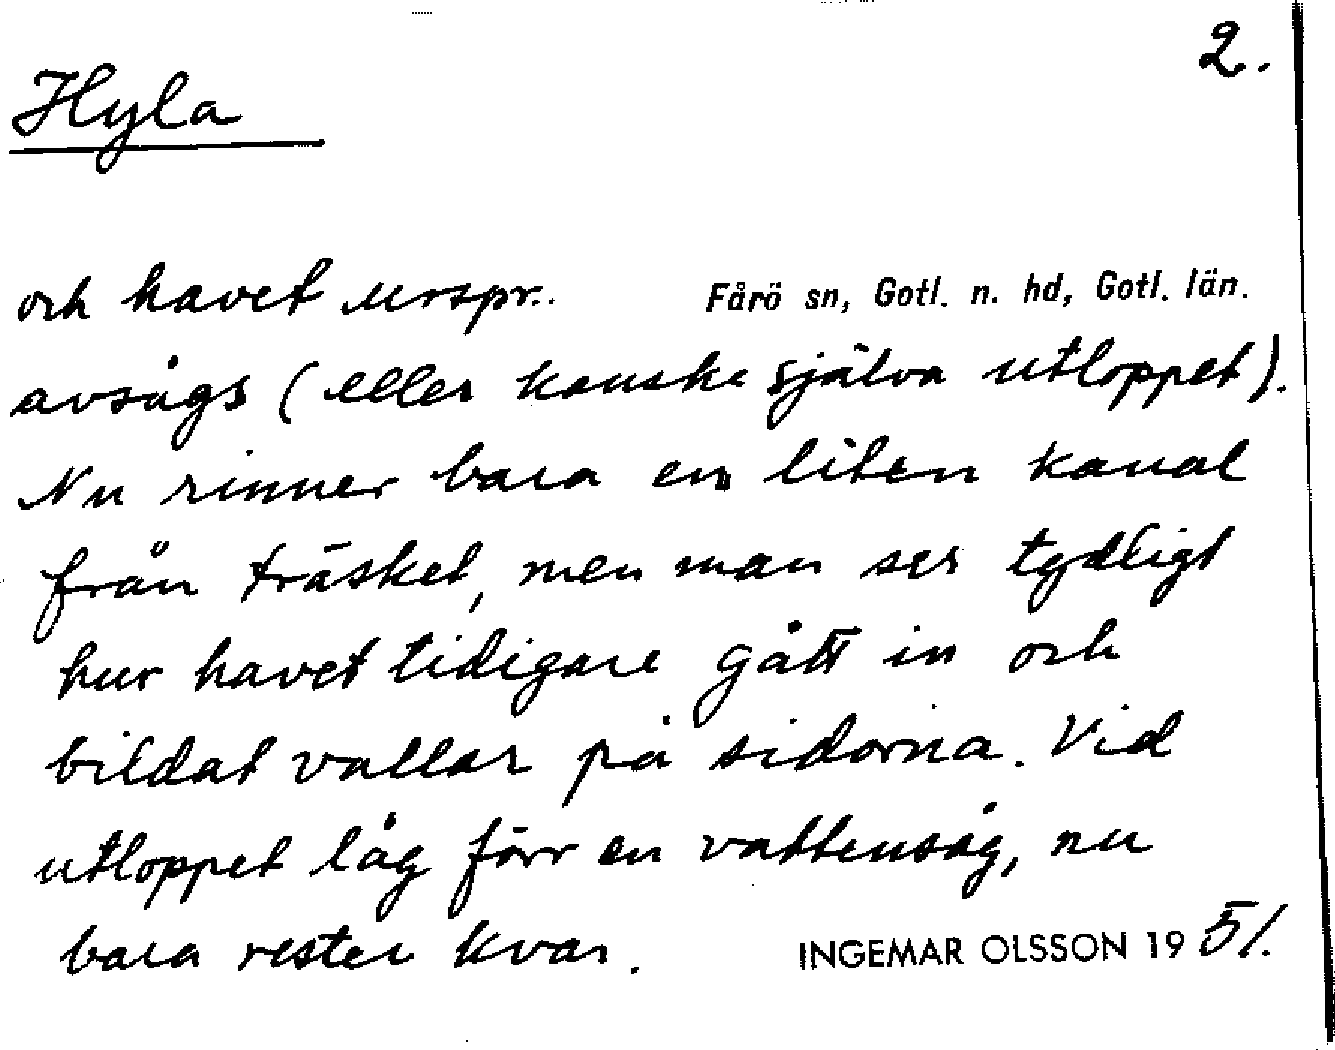 2.
Hyla
och havet urspr. Fårö sn, Gotl. n. hd, Gotl. län.
avsågs (eller kanske själva utloppet).
Nu rinner bara en liten kanal
från träsket, men man ser tydligt
hur havet tidigare gått in och
bildat vallar på sidorna. Vid
utloppet låg förr en vattensåg, nu
bara rester kvar. INGEMAR OLSSON 1951.